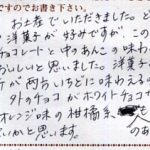 ですのでお書き下さい。
お土産でいただきました。ど
洋菓子が好みですが、この
チョコレートと中のあんこの味わ
おいしいと思いました。洋菓子の
ケが両おいちどに味わえるの
外のチョコがホワイトチョコ
オレンジ味の柑橘系
いかと思います。
人
のあ